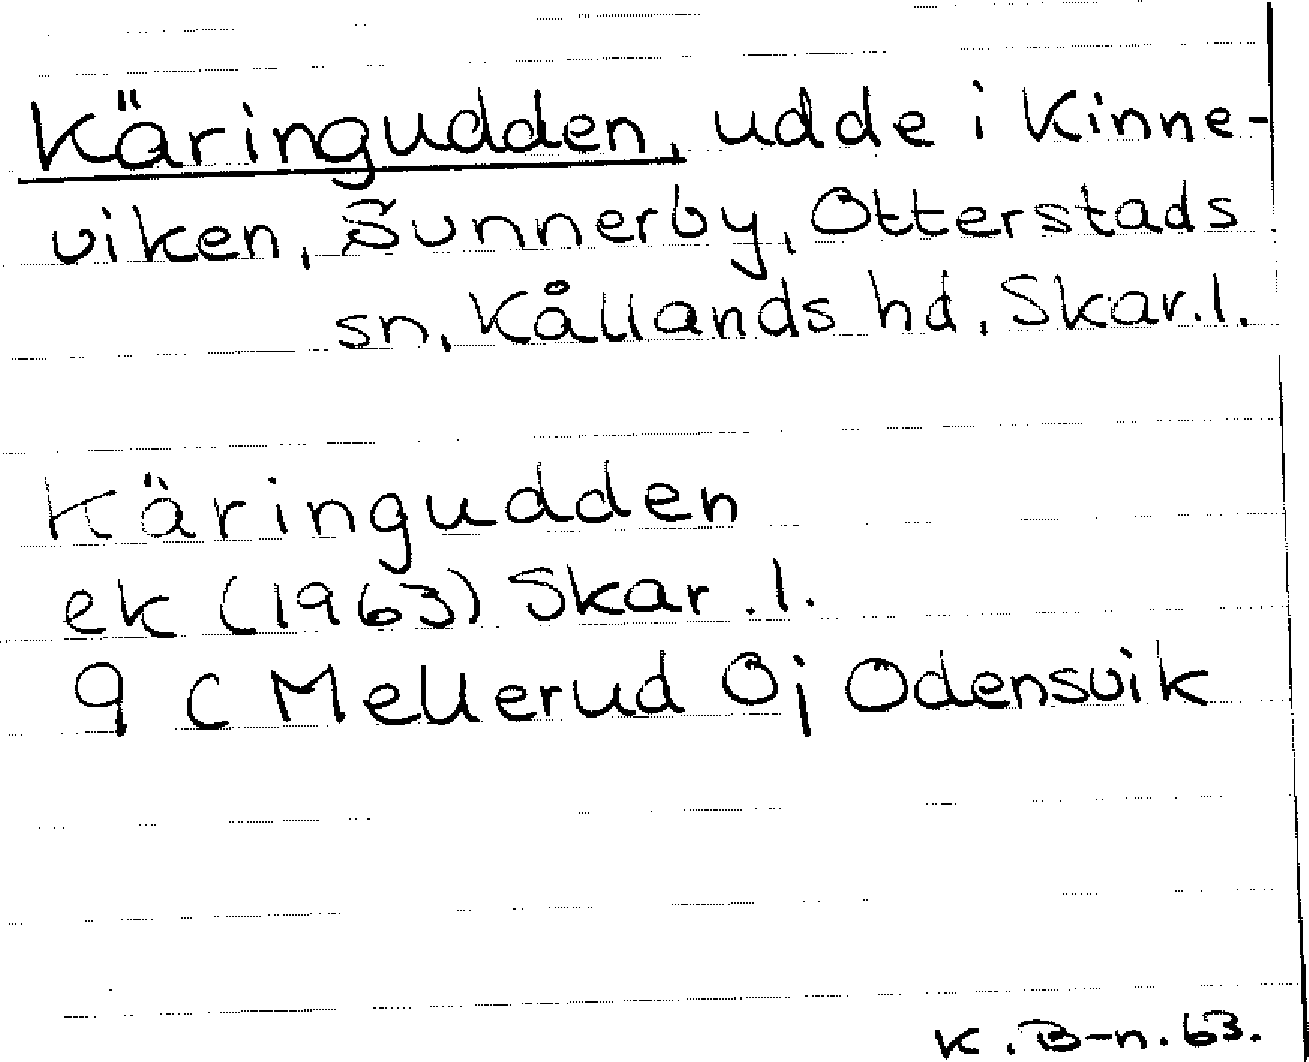 Käringudden, udde i Kinne-
viken, Sunnerby, Otterstads
sn, Kållands hd, Skar.l.
Käringudden
ek (1963) Skar.l.
9 C Mellerud Öj Odensvik
K.B-n.63.